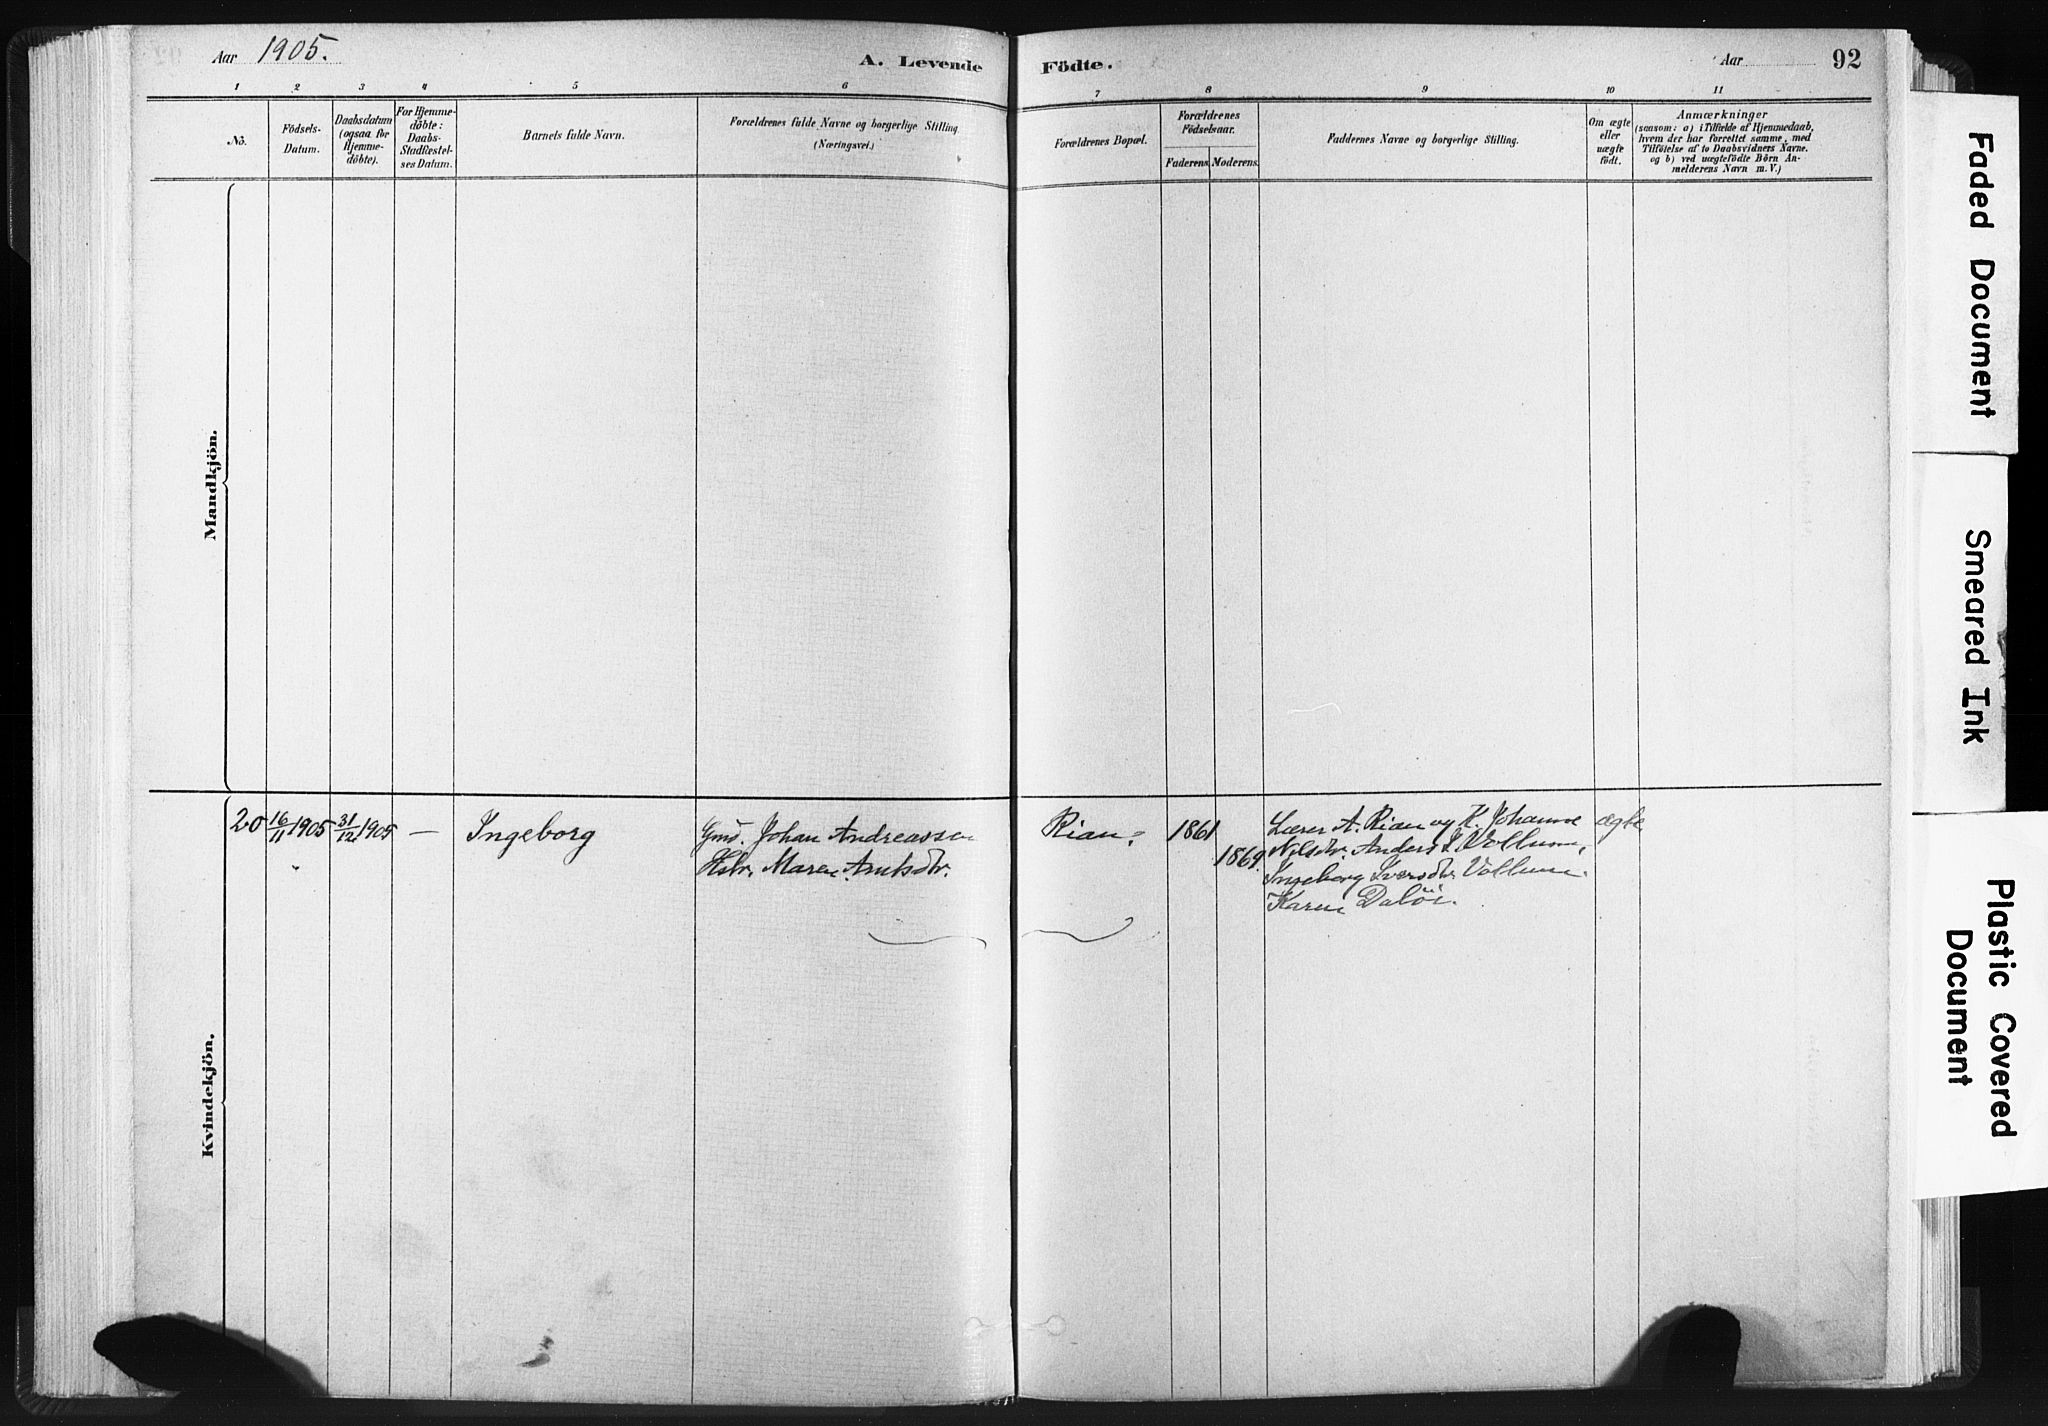 Aar 1905.
A. Levende Födte.
Aar
92
1 2 3 4 5 6 7 8 9 10 11
No.
Födsels-
Datum.
Daabsdatum
(ogsaa for
Hjemme-
döbte).
For Hjemme-
döbte:
Daabs-
Stadfæstel-
ses Datum.
Barnets fulde Navn.
Forældrenes fulde Navne og borgerlige Stilling
(Næringsvei.)
Forældrenes Bopæl.
Forældrenes
Födselsaar.
Faderens. Moderens.
Faddernes Navne og borgerlige Stilling.
Om ægte
eller
uægte
födt.
Anmærkninger
(saasom: a) i Tilfælde af Hjemmedaab,
hvem der har forrettet samme, med
Tilföielse af to Daabsvidners Navne.
og b) ved uægtefödte Börn An-
melderens Navn m. V.)
Mandkjön.
Kvindekjön.
20 16/11 1905 31/12 1905 — Ingeborg
Gmd. Johan Andreassen
Hstr. Maren Arntsdtr.
Rian.
1861
1869.
Lærer A. Rian og K. Johanne
Nilsdtr. Anders I. Vollum,
Ingeborg Iversdtr. Vollum.
Karen Daløi.
ægte
Faded Document
Smeared Ink
Plastic Covered
Document